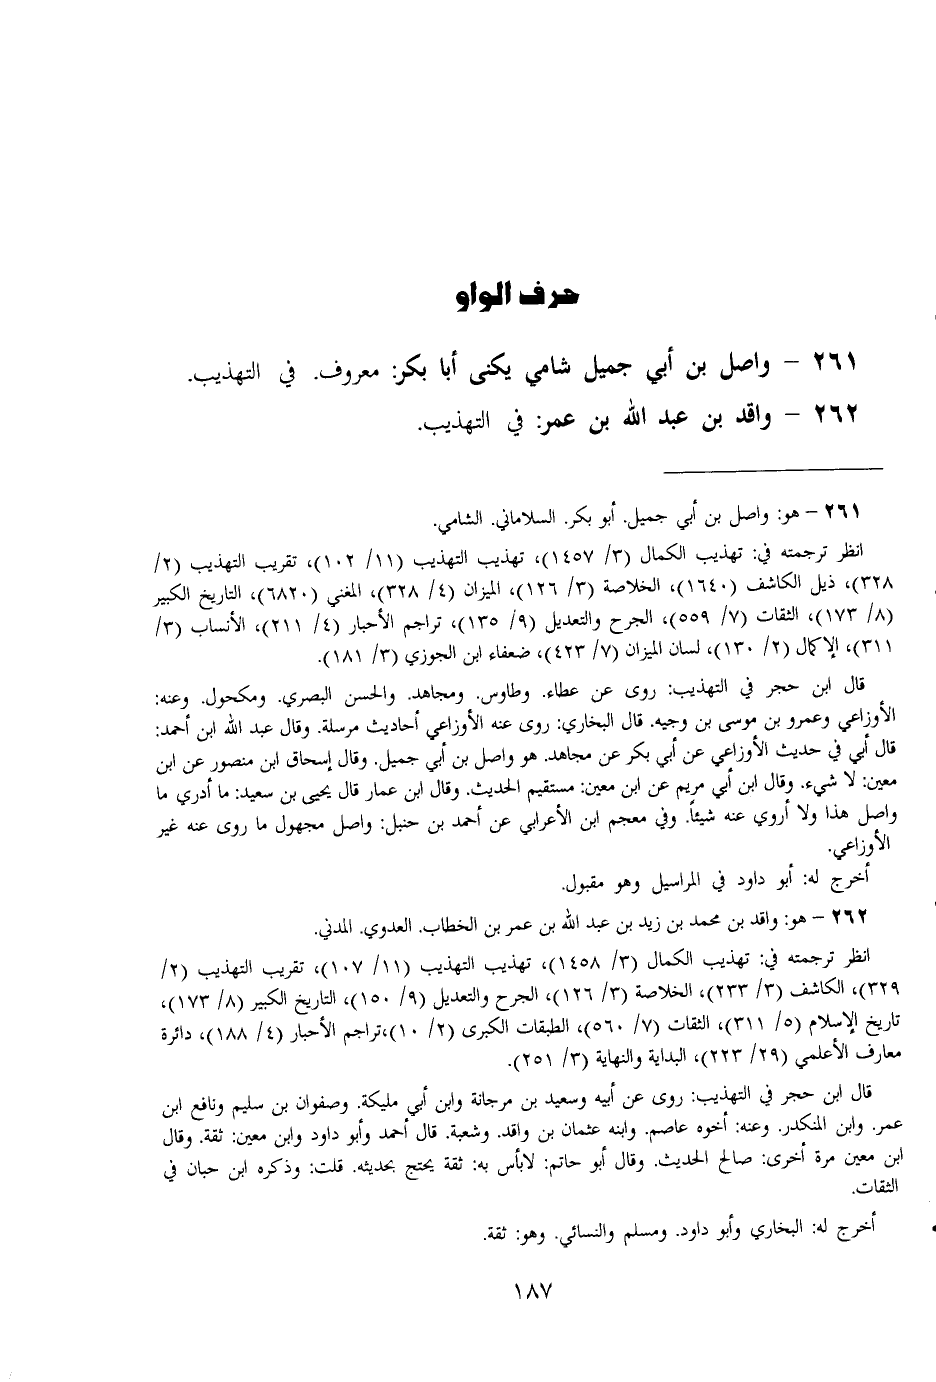 حرف الواو
٢٦١ – واصل بن أبي جميل شامي يكنى أبا بكر: معروف. في التهذيب.
٢٦٢ – واقد بن عبد الله بن عمر: في التهذيب.
٢٦١ – هو: واصل بن أبي جميل. أبو بكر. السلاماني. الشامي.
انظر ترجمته في: تهذيب الكمال (٣/ ١٤٥٧)، تهذيب التهذيب (١١/ ١٠٢)، تقريب التهذيب (٢/
٣٢٨)، ذيل الكاشف (١٦٤٠)، الخلاصة (٣/ ١٢٦)، الميزان (٤/ ٣٢٨)، المغني (٦٨٢٠)، التاريخ الكبير
(٨/ ١٧٣)، الثقات (٧/ ٥٥٩)، الجرح والتعديل (٩/ ١٣٥)، تراجم الأحبار (٤/ ٢١١)، الأنساب (٣/
٣١١)، الإكمال (٢/ ١٣٠)، لسان الميزان (٧/ ٤٢٣)، ضعفاء ابن الجوزي (٣/ ١٨١).
قال ابن حجر في التهذيب: روى عن عطاء. وطاوس. ومجاهد. والحسن البصري. ومكحول. وعنه:
الأوزاعي وعمرو بن موسى بن وجيه. قال البخاري: روى عنه الأوزاعي أحاديث مرسلة. وقال عبد الله ابن أحمد:
قال أبي في حديث الأوزاعي عن أبي بكر عن مجاهد. هو واصل بن أبي جميل. وقال إسحاق ابن منصور عن ابن
معين: لا شيء. وقال ابن أبي مريم عن ابن معين: مستقيم الحديث. وقال ابن عمار قال يحيى بن سعيد: ما أدري ما
واصل هذا ولا أروي عنه شيئاً. وفي معجم ابن الأعرابي عن أحمد بن حنبل: واصل مجهول ما روى عنه غير
الأوزاعي.
أخرج له: أبو داود في المراسيل وهو مقبول.
٢٦٢ – هو: واقد بن محمد بن زيد بن عبد الله بن عمر بن الخطاب. العدوي. المدني.
انظر ترجمته في: تهذيب الكمال (٣/ ١٤٥٨)، تهذيب التهذيب (١١/ ١٠٧)، تقريب التهذيب (٢/
٣٢٩)، الكاشف (٣/ ٢٣٣)، الخلاصة (٣/ ١٢٦)، الجرح والتعديل (٩/ ١٥٠)، التاريخ الكبير (٨/ ١٧٣)،
تاريخ الإسلام (٥/ ٣١١)، الثقات (٧/ ٥٦٠)، الطبقات الكبرى (٢/ ١٠)،تراجم الأحبار (٤/ ١٨٨)، دائرة
معارف الأعلمي (٢٩/ ٢٢٣)، البداية والنهاية (٣/ ٢٥١).
قال ابن حجر في التهذيب: روى عن أبيه وسعيد بن مرجانة وابن أبي مليكة. وصفوان بن سليم ونافع ابن
عمر. وابن المنكدر. وعنه: أخوه عاصم. وابنه عثمان بن واقد. وشعبة. قال أحمد وأبو داود وابن معين: ثقة. وقال
ابن معين مرة أخرى: صالح الحديث. وقال أبو حاتم: لابأس به: ثقة يحتج بحديثه. قلت: وذكره ابن حبان في
الثقات.
أخرج له: البخاري وأبو داود. ومسلم والنسائي. وهو: ثقة.
١٨٧